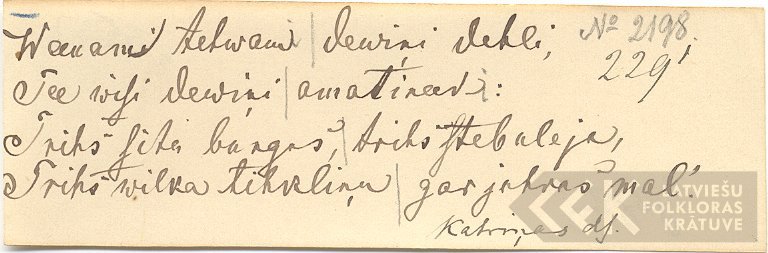 Weenami tehwami dewiņi dehli,
№ 2198.
229¹
Tee wiſi dewiņi amatineeki:
Trihs ſita bungas, trihs ſtebuleja,
Trihs wilka tihkliņu gar juhras mal'.
Katriņas dſ.
LATVIEŠU
FOLKLORAS
KRĀTUVE